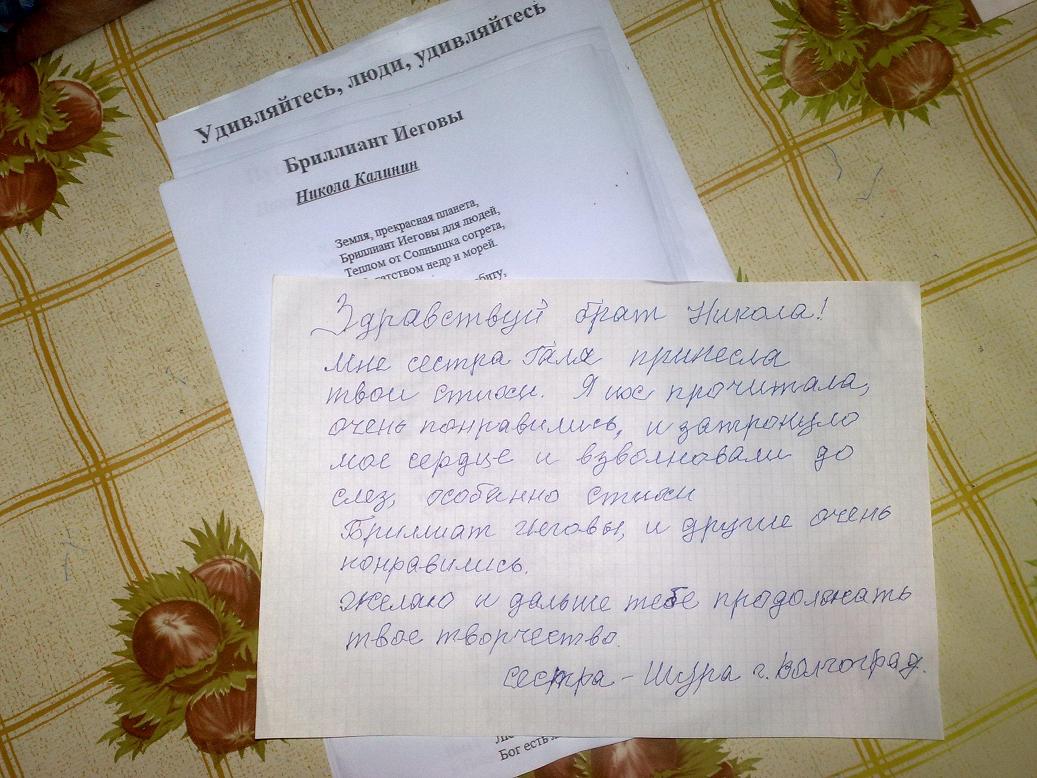 Удивляйтесь, люди, удивляйтесь
Бриллиант Иеговы
Никола Калинин
Земля, прекрасная планета,
Бриллиант Иеговы для людей,
Теплом от Солнышка согрета,
недр и морей.
Здравствуй брат Никола!
Мне сестра Галя принесла
твои стихи. Я их прочитала,
очень понравились, и затронуло
мое сердце и взволновали до
слез, особенно стихи
Бриллиат Иеговы, и другие очень
понравились.
Желаю и дальше тебе продолжать
твое творчество.
сестра - Шура г. Волгоград.
Бог есть